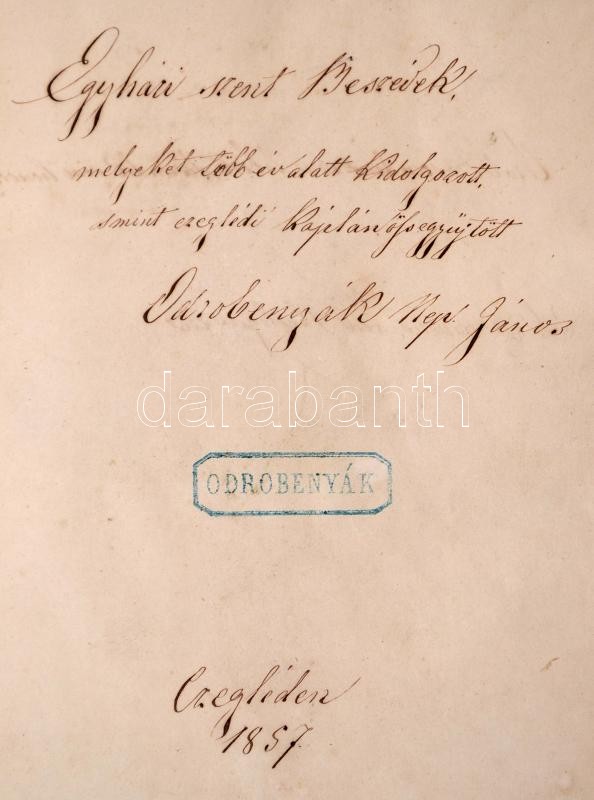 Egyházi szent Beszédek,
melyeket több év alatt kidolgozott,
s mint czeglédi káplán összegyűjtött
Odrobenyák Nep. János
darabanth
ODROBENYÁK
Czegléden
1857